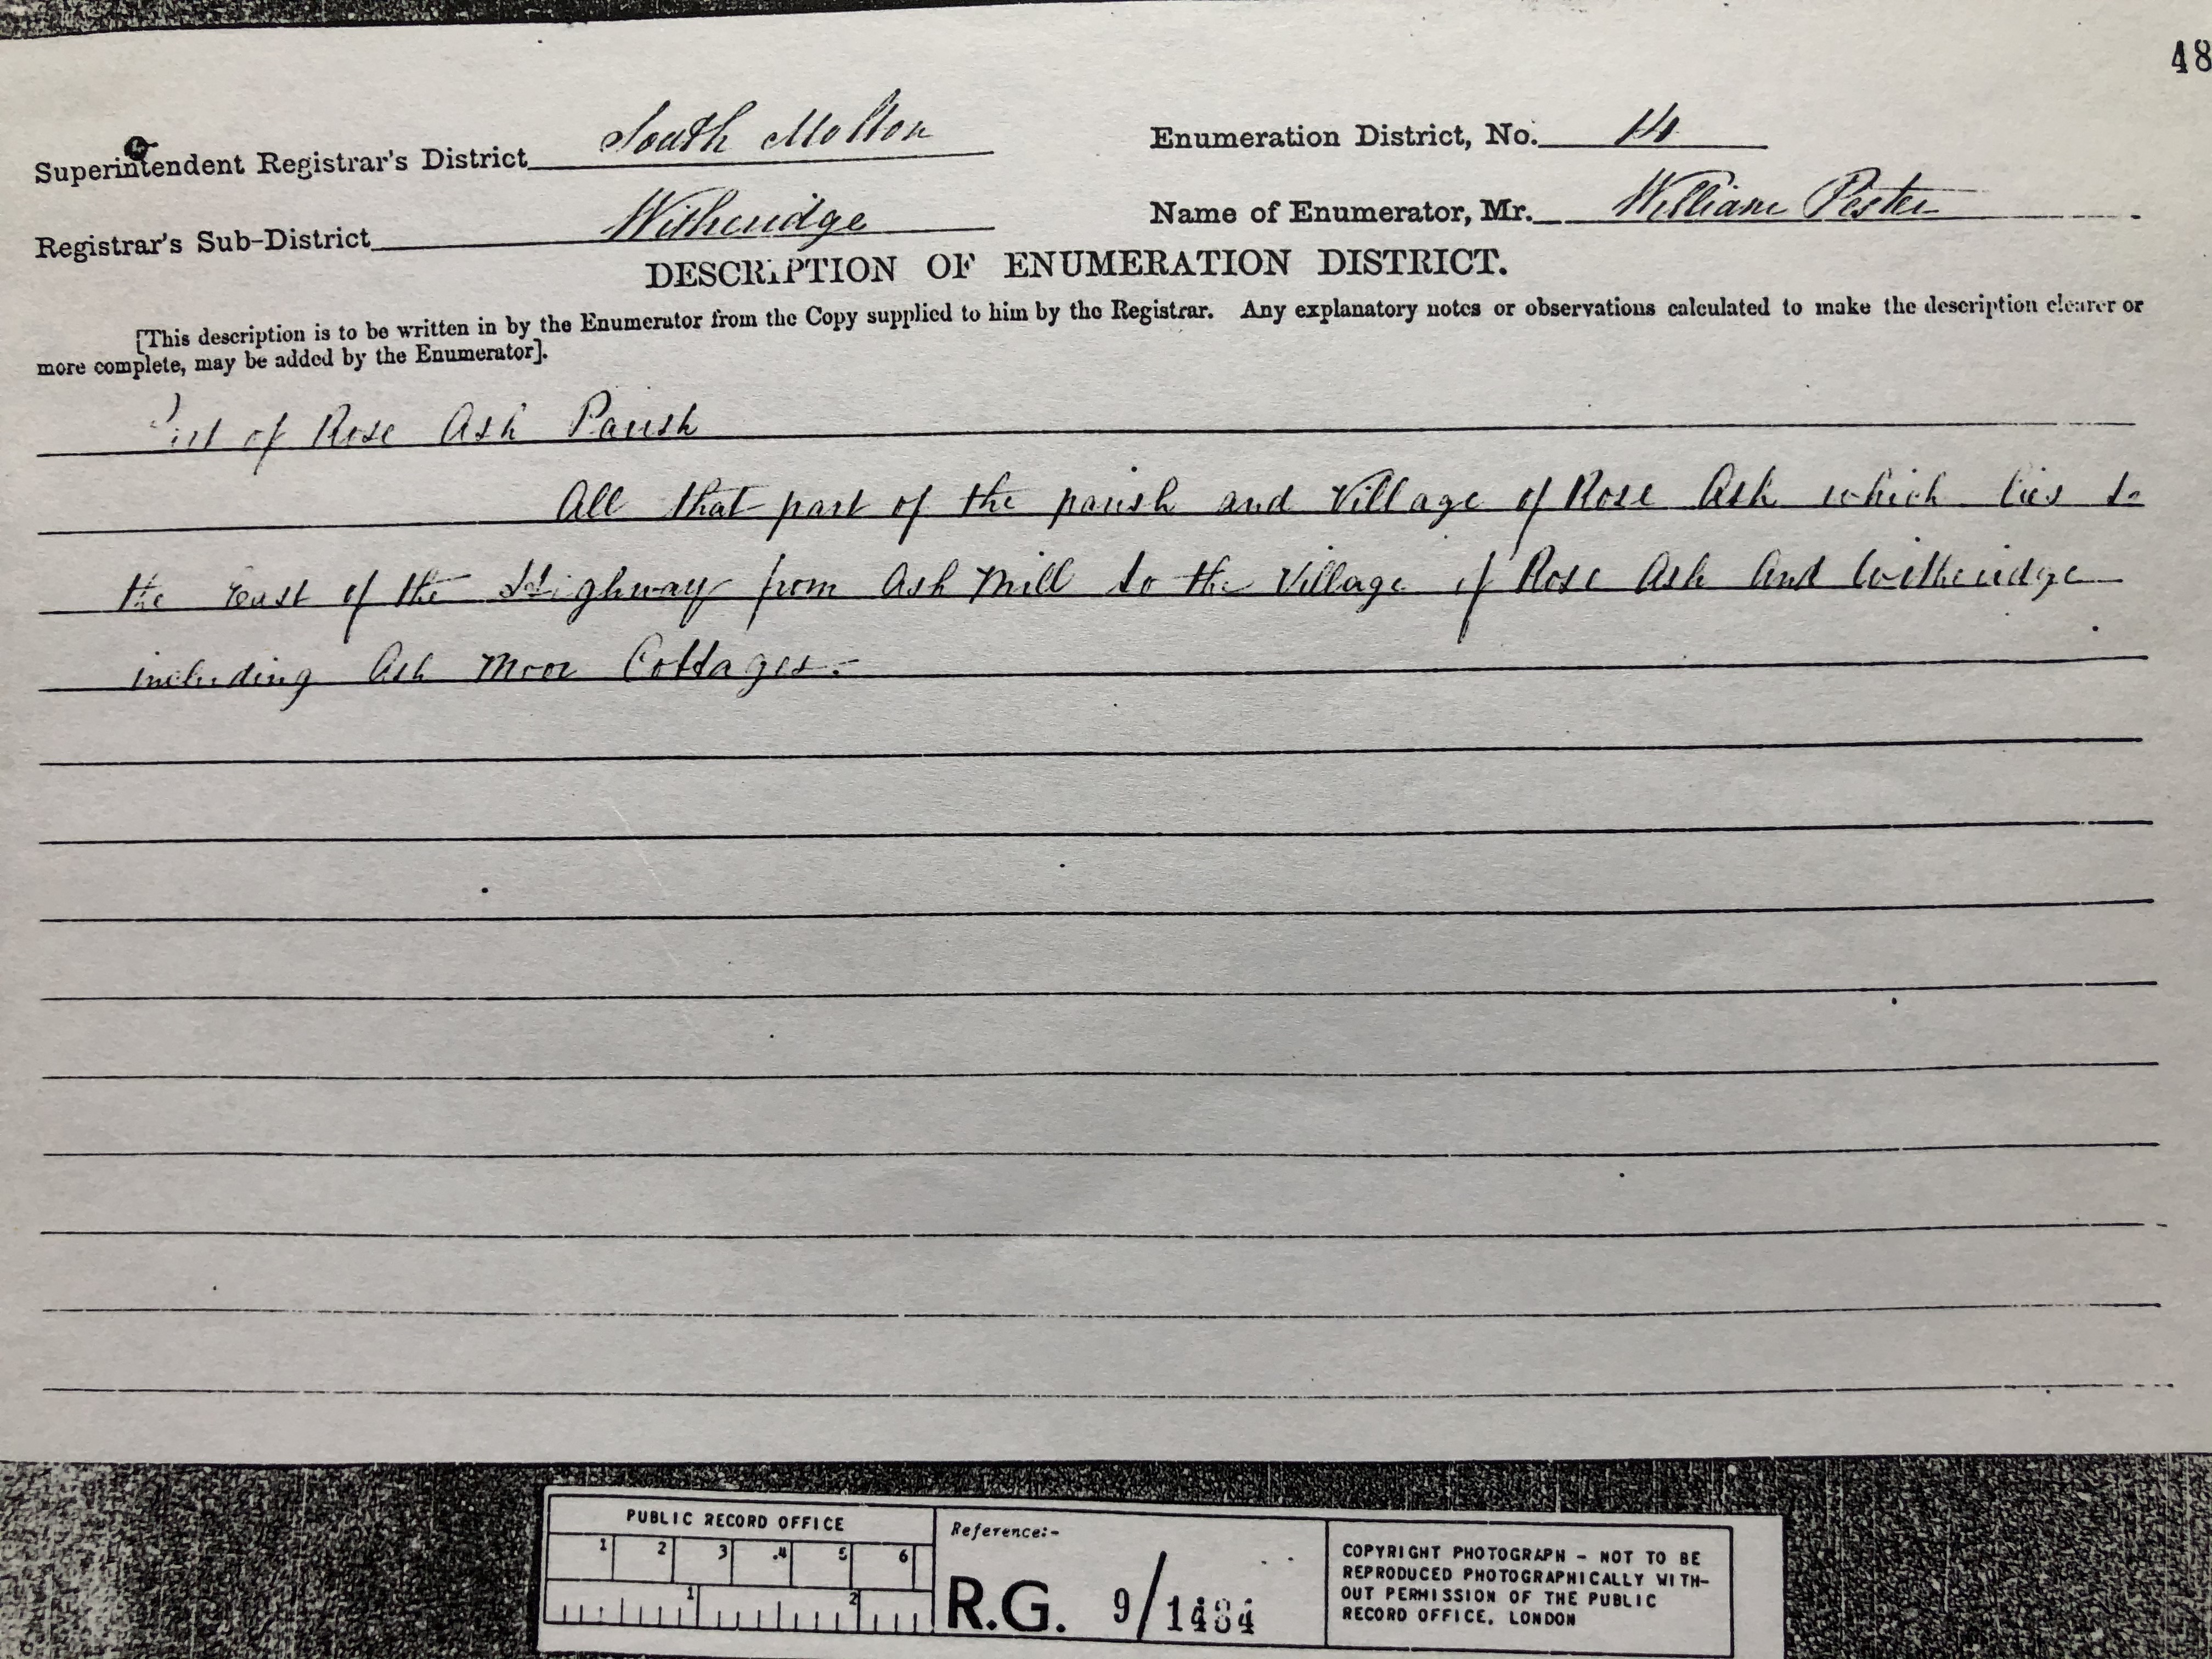 48
Superintendent Registrar's District South Molton
Enumeration District, No. 14
Registrar's Sub-District Witheridge
Name of Enumerator, Mr. William Pester
DESCRIPTION OF ENUMERATION DISTRICT.
[This description is to be written in by the Enumerator from the Copy supplied to him by the Registrar. Any explanatory notes or observations calculated to make the description clearer or
more complete, may be added by the Enumerator].
Part of Rose Ash Parish
All that part of the parish and Village of Rose Ash which lies to
the East of the Highway from Ash Mill to the Village of Rose Ash And Witheridge
including Ash Moor Cottages.-
PUBLIC RECORD OFFICE
1 2 3 4 5 6
1 2
Reference:-
R.G. 9/1484
COPYRIGHT PHOTOGRAPH - NOT TO BE
REPRODUCED PHOTOGRAPHICALLY WITH-
OUT PERMISSION OF THE PUBLIC
RECORD OFFICE, LONDON